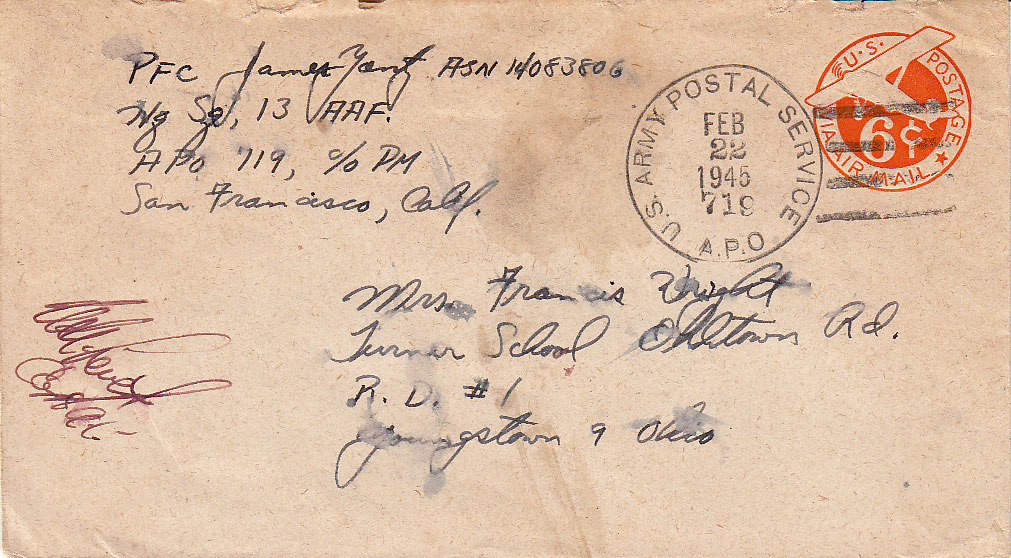 PFC James Yantz ASN 14083806
Hq Sq, 13 AAF.
APO 719, c/o PM
San Francisco, Calif.
U.S. ARMY POSTAL SERVICE
FEB
22
1945
719
A.P.O
U.S. POSTAGE
6¢
VIA AIR MAIL
Mrs. Francis Wright
Turner School Ohltown Rd.
R. D. #1
Youngstown 9 Ohio